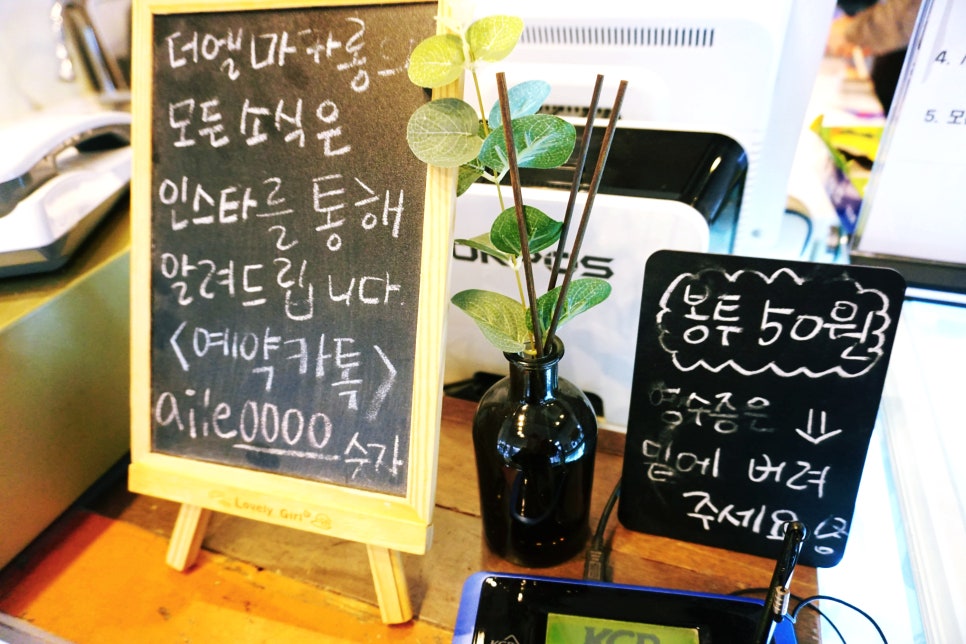 더엘마카롱으
모든 소식은
인스타를 통해
알려드립니다.
<예약카톡>
aile0000 숫자
Lovely Girl
OKPOS
봉투 50원
영수증은 ⇓
밑에 버려
주세요
KCP
4.
5. 모